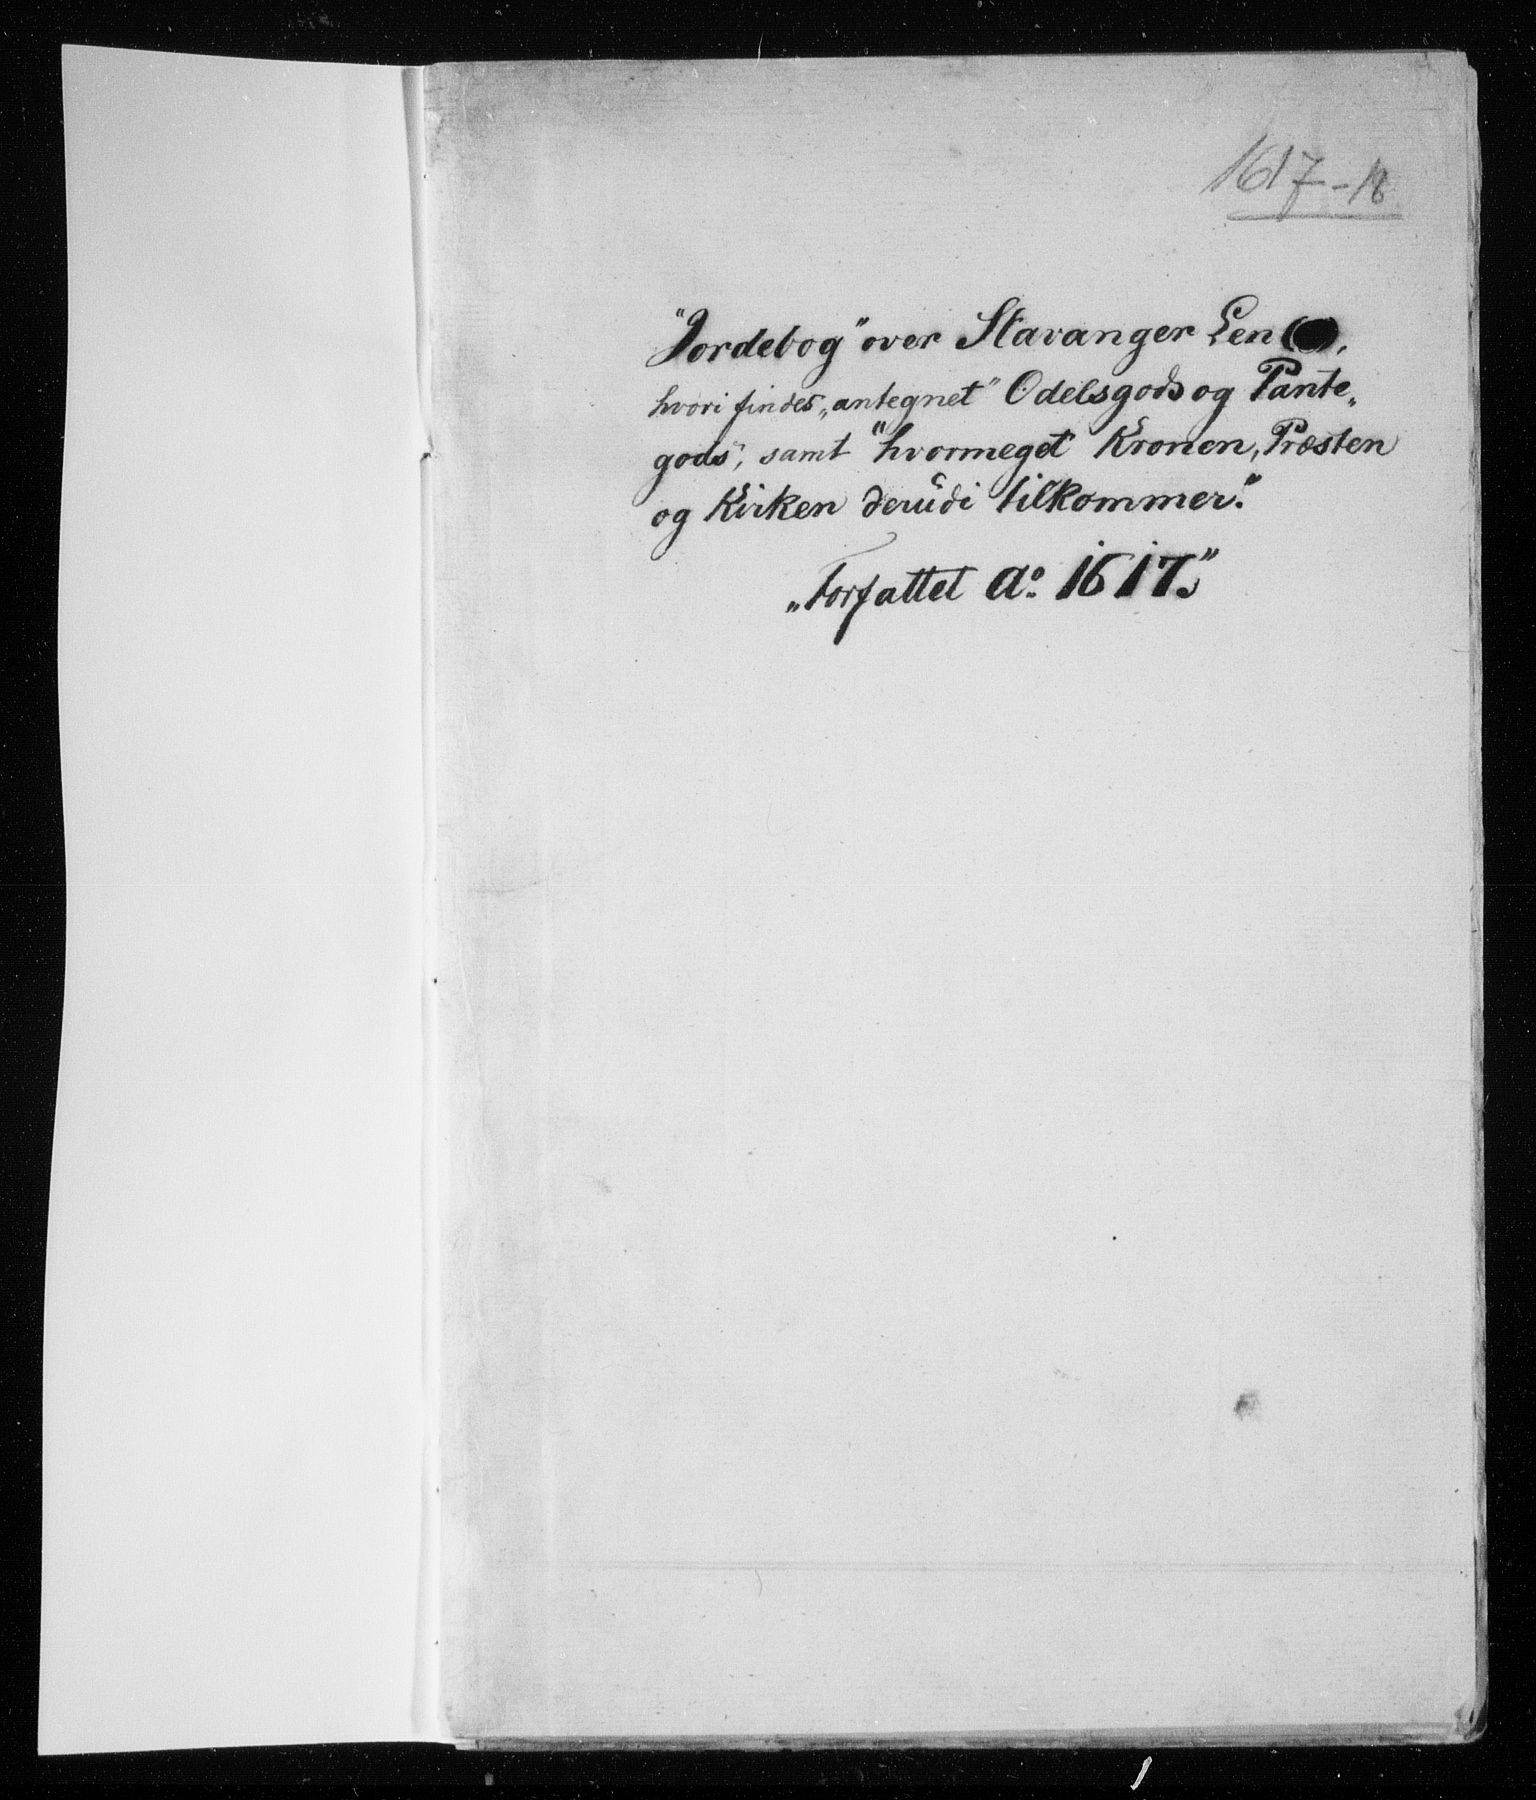 1617-18
"Jordebog" over Stavanger Len,
hvori findes "antegnet" Odelsgods og Pante-
gods", samt "hvormeget Kronen, Præsten
og Kirken derudi tilkommer."
"Forfattet Aº. 1617."